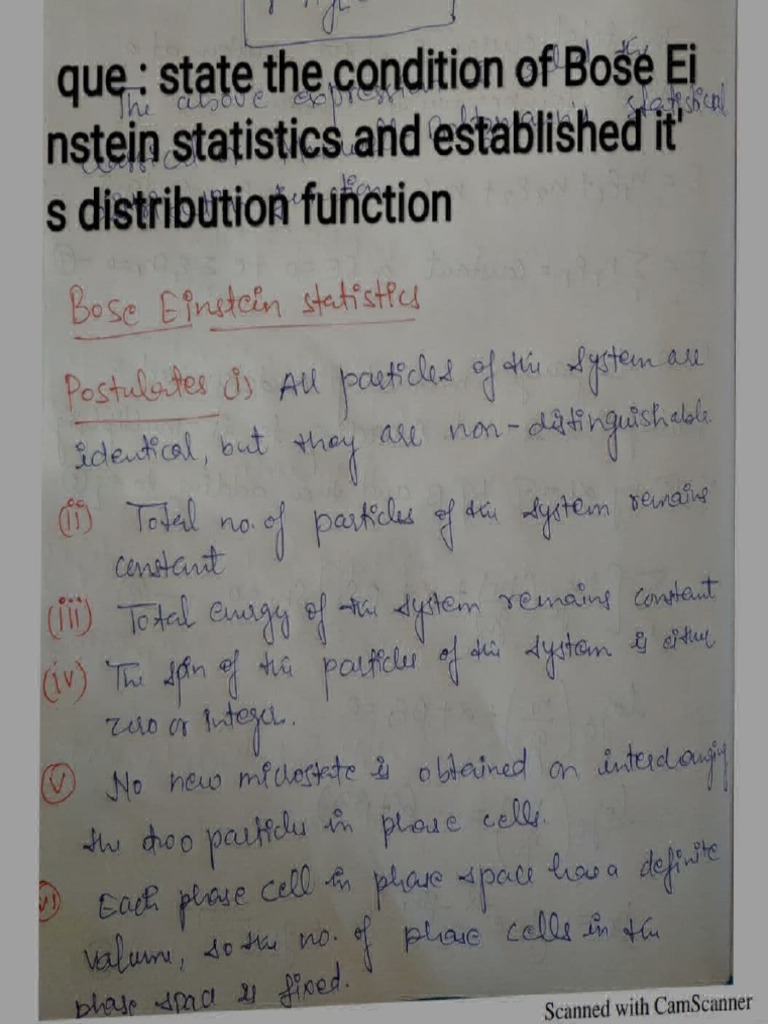 que : state the condition of Bose Ei
nstein statistics and established it'
s distribution function
Bose Einstein statistics
Postulates (i) All particles of the system are
identical, but they are non-distinguishable
(ii) Total no. of particles of the system remains
constant
(iii) Total energy of the system remains constant
(iv) The spin of the particles of the system is either
zero or integer.
(v) No new microstate is obtained on interchanging
the two particles in phase cells.
(vi) Each phase cell in phase space has a definite
volume, so the no. of phase cells in the
phase space is fixed.
Scanned with CamScanner